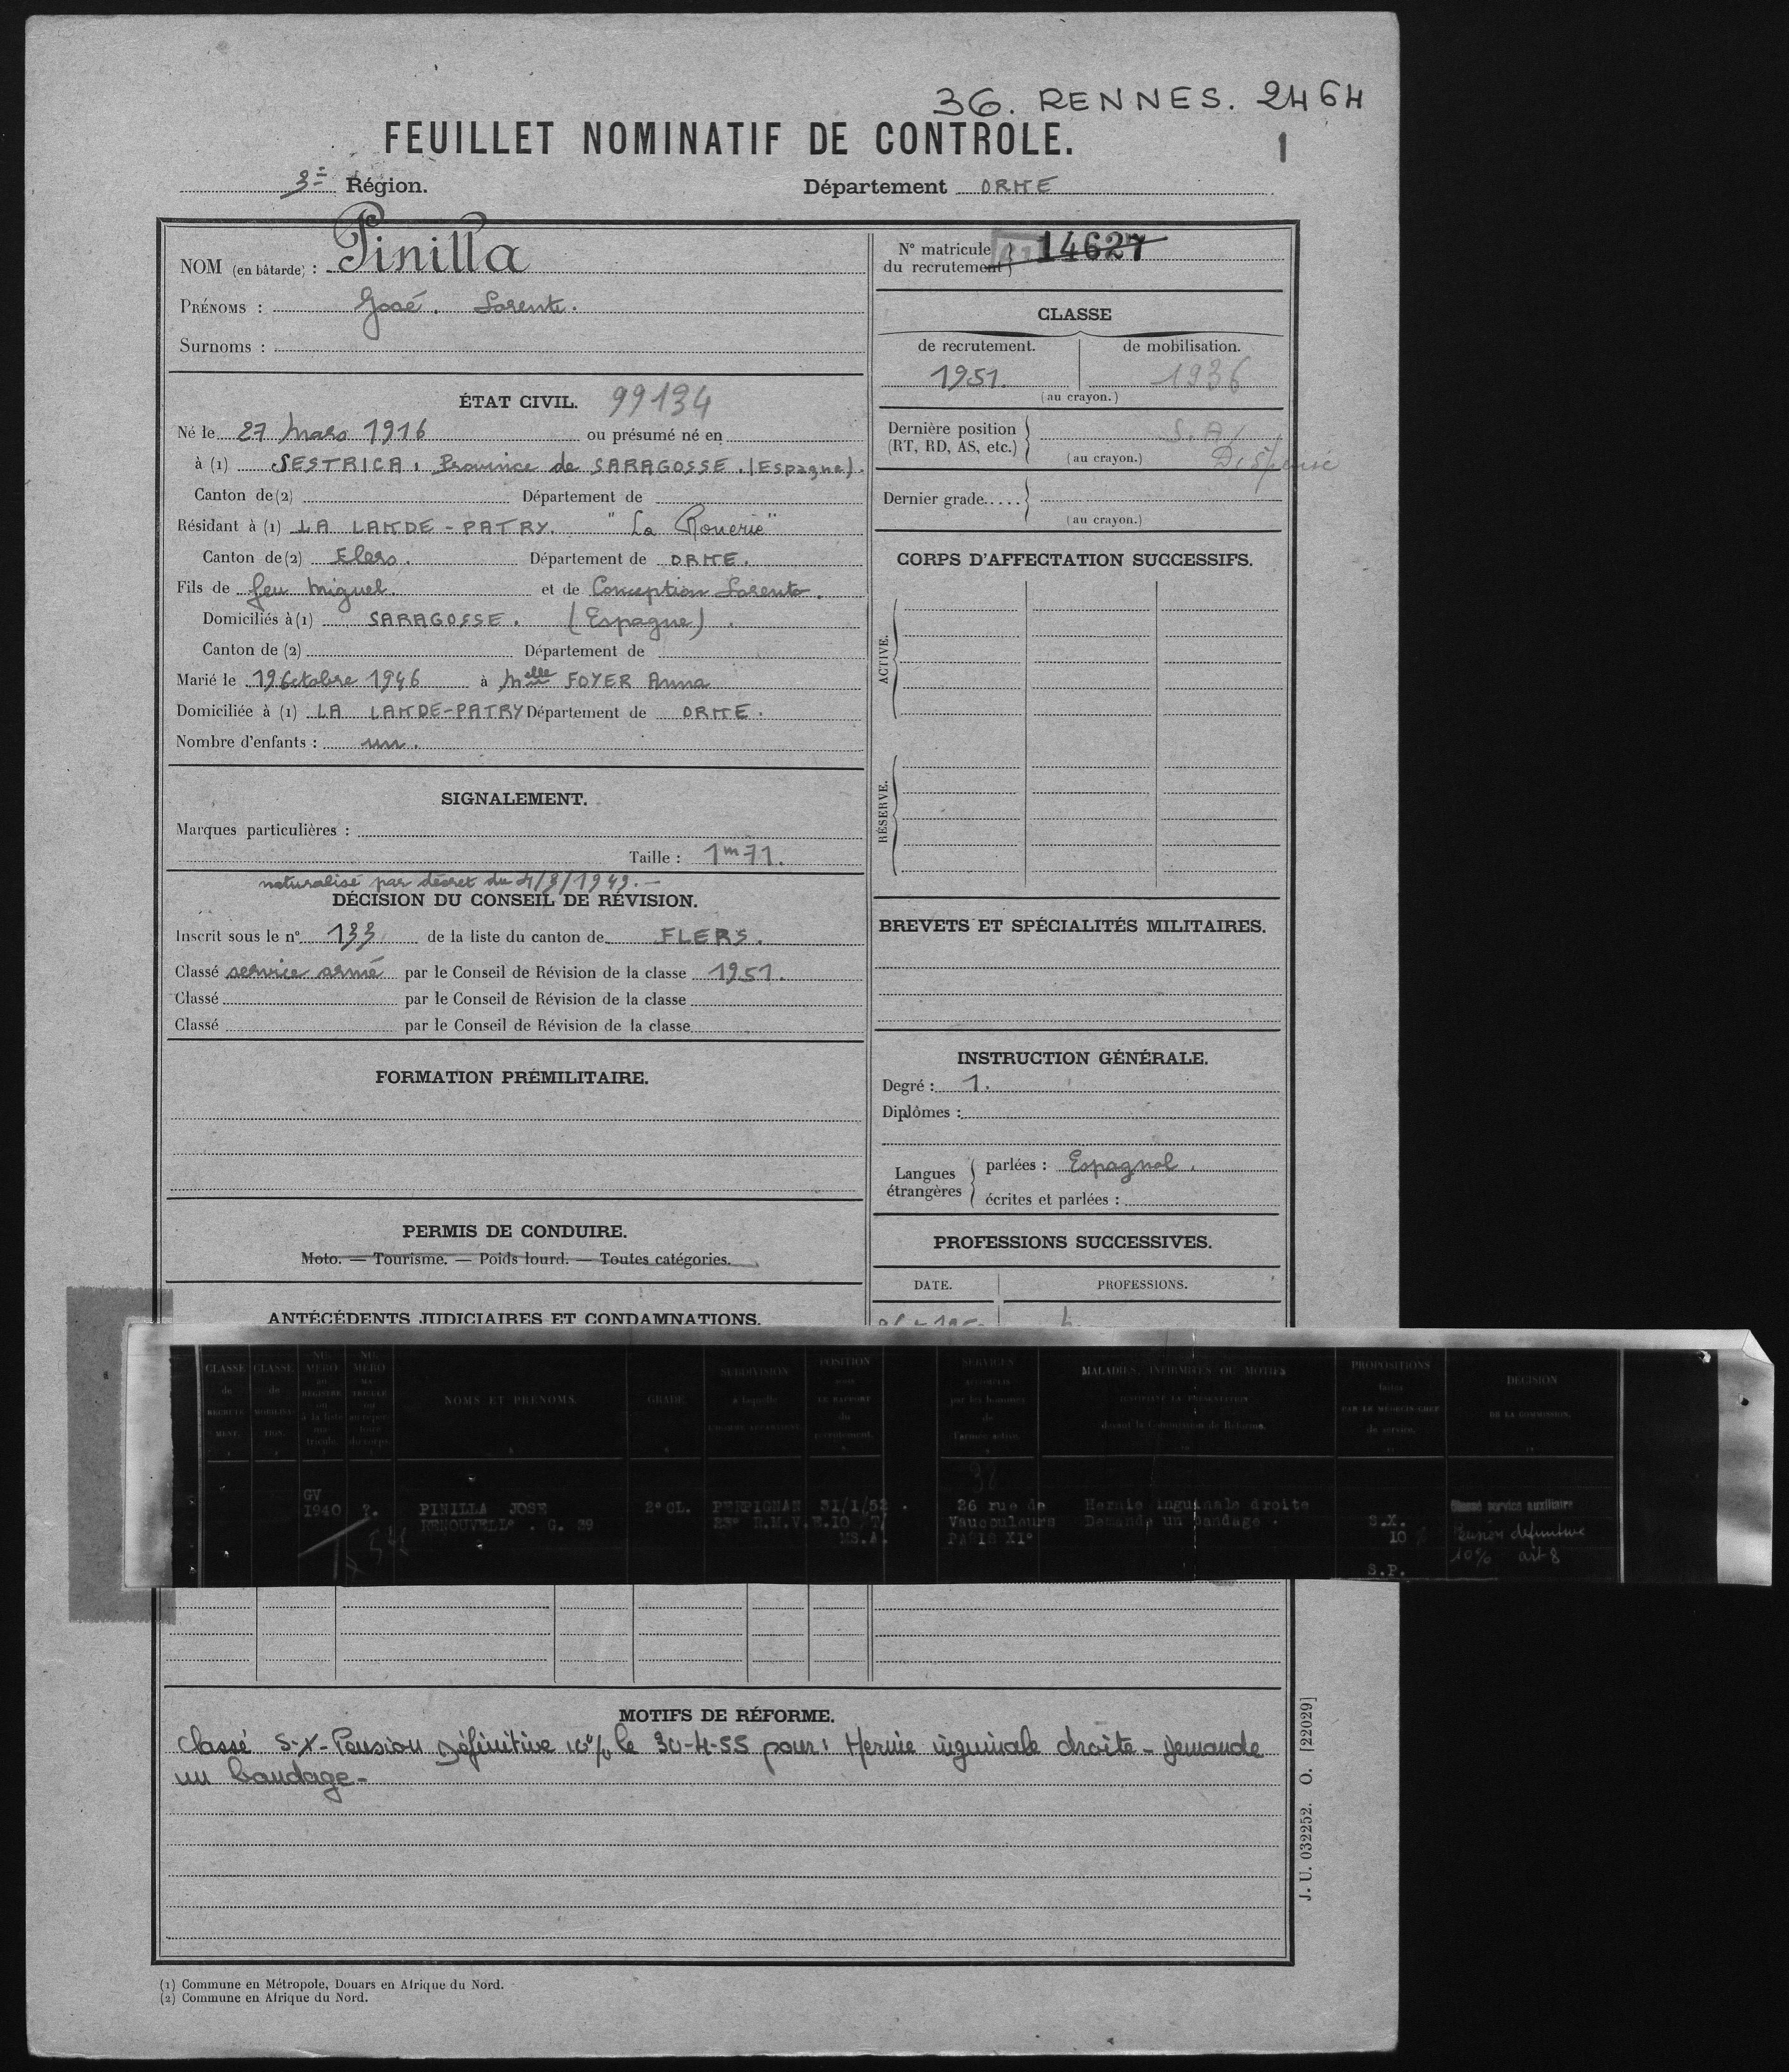 36. RENNES. 2464
FEUILLET NOMINATIF DE CONTROLE.
1
3e Région. Département ORNE
NOM (en bâtarde) : Pinilla
PRÉNOMS : José. Lorente.
Surnoms :
ÉTAT CIVIL. 99134
Né le 27 Mars 1916 ou présumé né en
à (1) SESTRICA, Province de SARAGOSSE. (Espagne).
Canton de (2) Département de
Résidant à (1) LA LANDE-PATRY. "La Rouerie"
Canton de (2) Flers. Département de ORNE.
Fils de feu Miguel. et de Conception Lorente.
Domiciliés à (1) SARAGOSSE. (Espagne).
Canton de (2) Département de
Marié le 19 Octobre 1946 à Melle FOYER Anna
Domiciliée à (1) LA LANDE-PATRY Département de ORNE.
Nombre d'enfants : un.
SIGNALEMENT.
Marques particulières :
Taille : 1m71.
naturalisé par décret du 4/8/1949. -
DÉCISION DU CONSEIL DE RÉVISION.
Inscrit sous le n° 133 de la liste du canton de FLERS.
Classé service armé par le Conseil de Révision de la classe 1951.
Classé par le Conseil de Révision de la classe
Classé par le Conseil de Révision de la classe
FORMATION PRÉMILITAIRE.
PERMIS DE CONDUIRE.
Moto. — Tourisme. — Poids lourd. — Toutes catégories.
ANTÉCÉDENTS JUDICIAIRES ET CONDAMNATIONS.
N° matricule
du recrutement 14627
CLASSE
de recrutement. de mobilisation.
1951. 1936
(au crayon.)
Dernière position
(RT, RD, AS, etc.) S.A/
(au crayon.) Dispensé
Dernier grade.....
(au crayon.)
CORPS D'AFFECTATION SUCCESSIFS.
ACTIVE.
RÉSERVE.
BREVETS ET SPÉCIALITÉS MILITAIRES.
INSTRUCTION GÉNÉRALE.
Degré : 1.
Diplômes :
Langues étrangères
parlées : Espagnol.
écrites et parlées :
PROFESSIONS SUCCESSIVES.
DATE. PROFESSIONS.
CLASSE de RECRUTEMENT.
CLASSE de MOBILISATION.
NUMÉRO
NUMÉRO
NOMS ET PRÉNOMS.
GRADE.
SUBDIVISION
POSITION
SERVICES
MALADIES, INFIRMITÉS OU MOTIFS
devant la Commission de Réforme.
PROPOSITIONS faites PAR LE MÉDECIN-CHEF de service.
DÉCISION DE LA COMMISSION.
GV
1940 ?. PINILLA JOSE 2° CL. PERPIGNAN 31/1/52 26 rue de Hernie inguinale droite Classé service auxiliaire
RENOUVELLt . G. 39 23° R.M.V.E. 10 T/ Vaucouleurs Demande un bandage . S.X. Pension définitive
MS.A. PARIS XI° 10 10% art 8
S.P.
MOTIFS DE RÉFORME.
Classé S.X- Pension Définitive 10% le 30-4-55 pour: Hernie inguinale droite - Demande
un bandage -
(1) Commune en Métropole, Douars en Afrique du Nord.
(2) Commune en Afrique du Nord.
J. U. 032252. O. [22029]